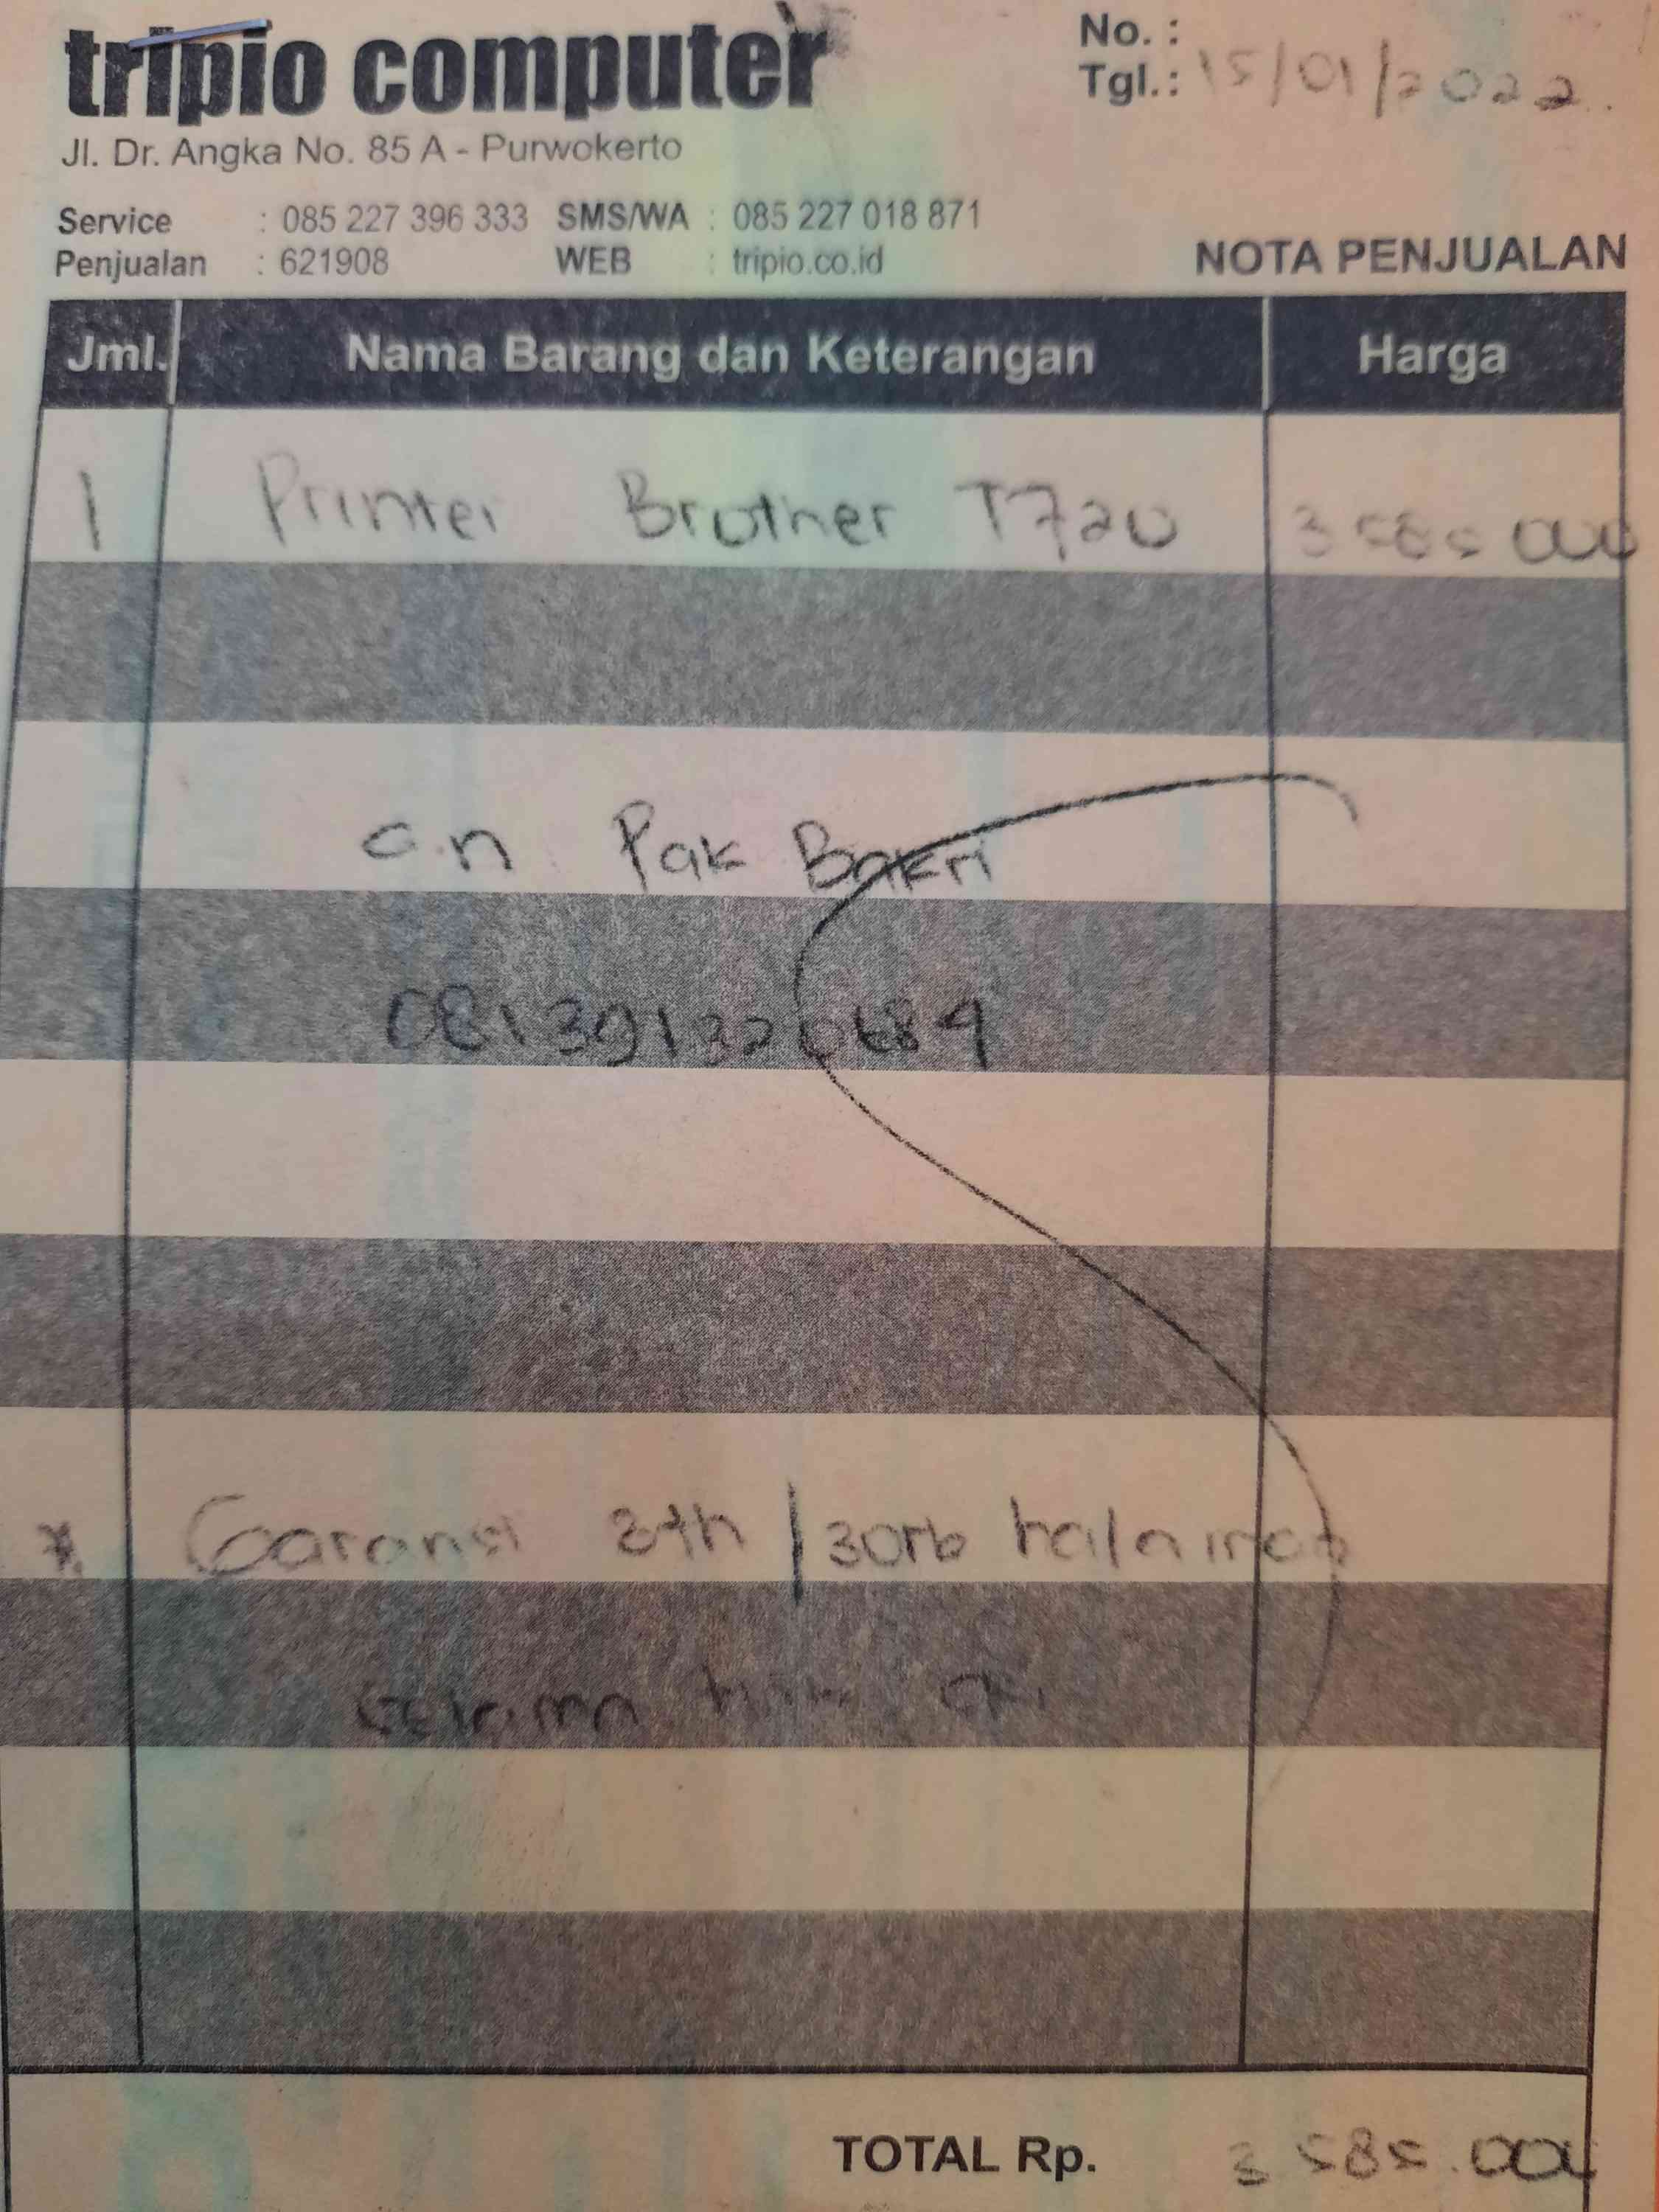 tripio computer
No. :
Tgl.: 15/01/2022
Jl. Dr. Angka No. 85 A - Purwokerto
Service : 085 227 396 333 SMS/WA : 085 227 018 871
Penjualan : 621908 WEB : tripio.co.id
NOTA PENJUALAN
Jml. Nama Barang dan Keterangan Harga
1 Printer Brother T720 3 585 000
a.n Pak Bakri
081391320689
* Garansi 3th / 30rb halaman
selama
TOTAL Rp. 3 585.000